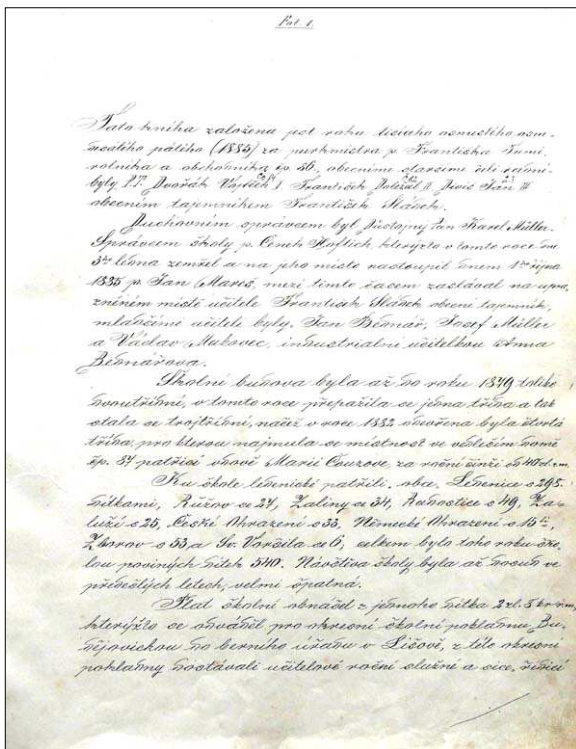 Fol. 1.
Tato kniha založena jest roku tisícého osmistého osm-
desátého pátého (1885) za purkmistra p. Františka
rolníka a obchodníka čp. 56. obecními staršími čili radními
byly P.P. Dvořák Vojtěch I. František Doležal II. Jan III
obecním tajemníkem František Slášek.
Duchovním správcem byl Důstojný Pan Karel Müller.
Správcem školy p. Čeněk Hoftich kterýžto v tomto roce dne
3ho ledna zemřel a na jeho místo nastoupil dnem 1ho října
1885 p. Jan Mareš, mezi tímto časem zastával na upra-
zněném místě učitele František Slášek obecní tajemník,
mladšími učiteli byly, Jan Bednář, Josef Müller
a Václav Mukovec, industrialní učitelkou Anna
Bednářova.
Školní budova byla až do roku 1879 toliko
dvoutřídní, v tomto roce přepažila se jedna třída a tak
stala se trojtřídní, načež v roce 1882 otevřena byla čtvrtá
třída, pro kterou najmula se místnost ve vedlejším domě
čp. 37 patřící vdově Marii Couzove za roční činži 40
Ku škole ledenické patřili oba. Ledenice s 295
dítkami, Růžov se 27, Zaliny se 34, Radostice s 49, Za-
luží s 25, České Ohrazení s 33, Německé Ohrazení s 15ti,
Zborov s 53, a Sv. Voršila se 6, celkem bylo toho roku ško-
lou povinných dítek 540. Návštěva školy byla až dosud ve
předešlých letech, velmi špatná.
Plat školní obnášel z jednoho dítka 2 zl. 5 kr.
kterýžto se odváděl pro okresní školní pokladnu Bu-
dějovickou do berního úřadu v Lišově, z této okresní
pokladny dostávali učitelové roční služné a sice, řídící